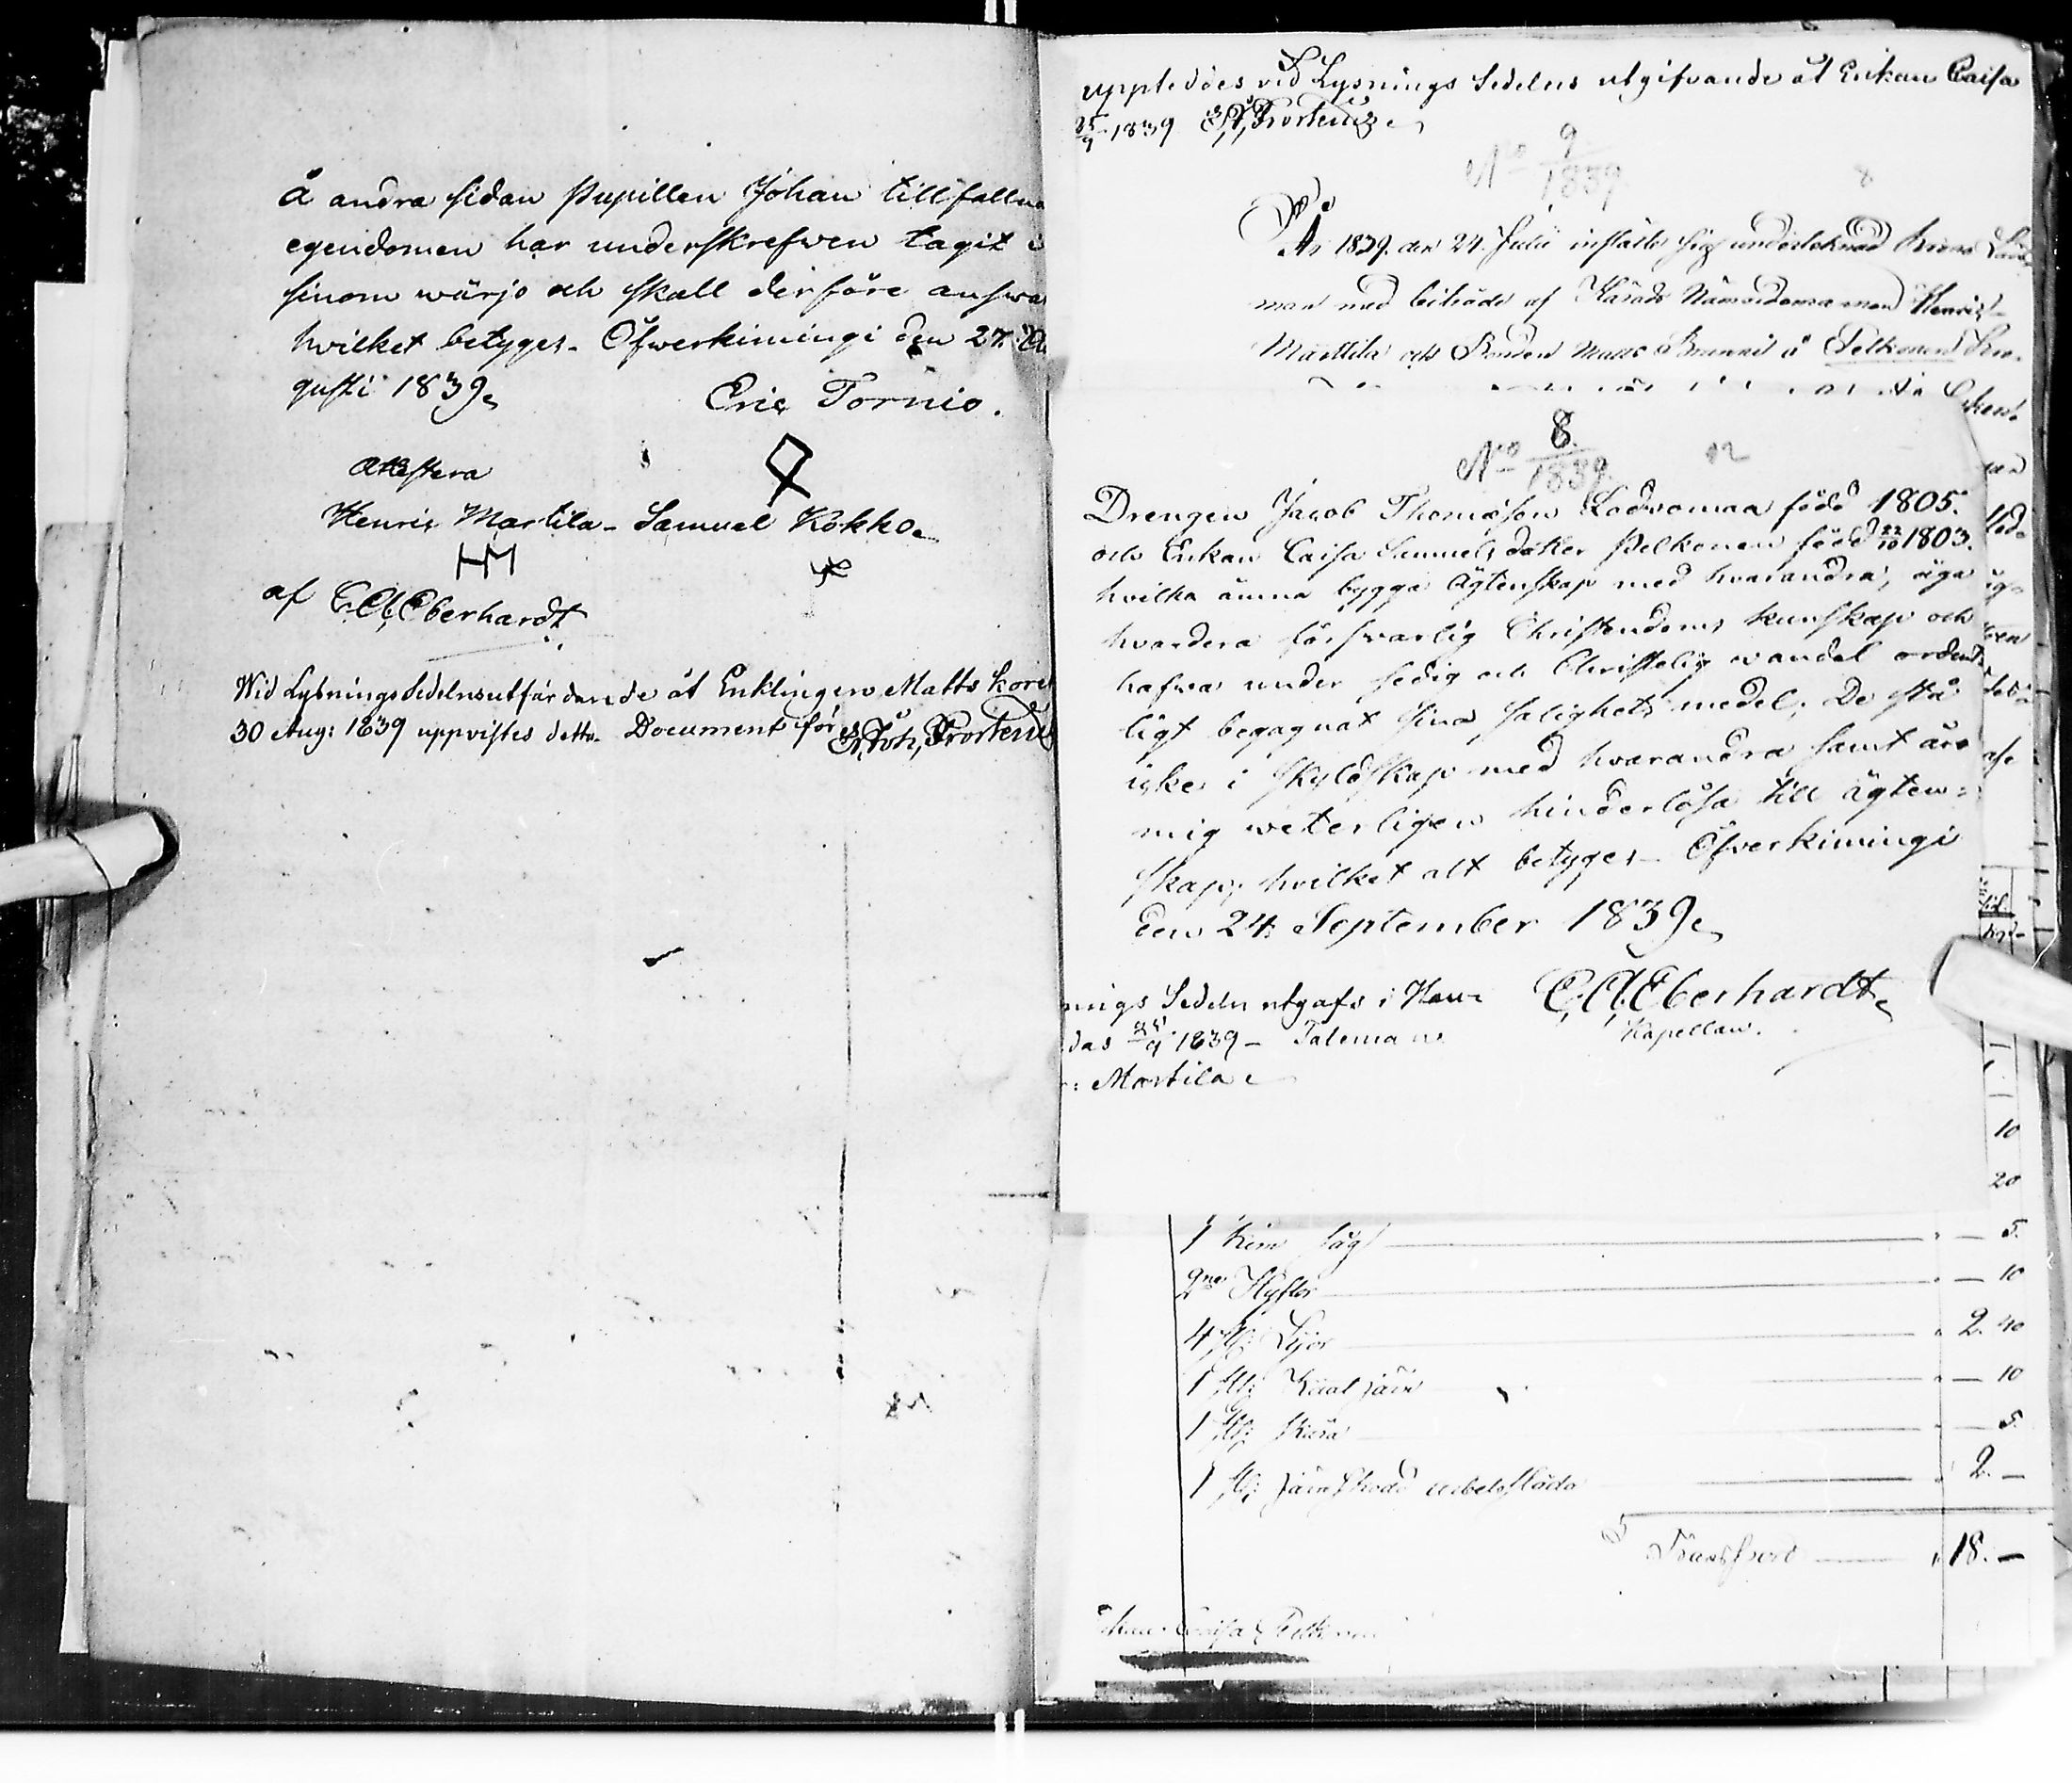 å andra sidan Pupillen Johan tillfallna
egendomen har underskrefwen tagit i
sinom wärjo och skall derföre answa
hvilket betyges. Öfwerkimingi den 27. Au
gusti 1839.
Eric Tornio.
Attestera
Henric Martila - Samuel Kokko.
HM
af C. A. Eberhardt
Wid Lysnings Sedelns utfärdande åt Enklingen Matts Kore
30 Aug: 1839 uppvistes detta Document för N. Joh. Frosterus
uppteddes vid Lysnings Sedelns utgifvande åt Enkan Caisa
25/9 1839 Frosterus
No 9/1839
8
År 1839 den 24. Julii inställte sig undertecknad Krono Läns
man med biträde af Härads Nämndeman Henric
Marttila och Bonden Matts å Pelkonen
No 8/1839
12
Drengen Jacob Thomasson Lodvomaa född 1805.
och Enkan Caisa Samuelsdotter Pelkonen född 22/10 1803.
hvilka ämna bygga Ägtenskap med hvarandra, äga
hvardera försvarlig Christendoms kunskap och
hafva under sedig och Christelig wandel ordent-
ligt begagnat sina salighets medel; De stå
icke i skyldskap med hvarandra samt äro
mig veterligen hinderlösa till ägten-
skap; hvilket alt betyges. Öfverkimingi
den 24. September 1839.
nings Sedeln utgafs i Hau-
das 25/9 1839 - Taleman
r: Martila
C. A. Eberhardt
Kapellan.
10
20
1 Kim såg — 5.
2ne Hyflar — 10
4 st: Lijor 2. 40
1 st: — 10
1 st: Skära — 5.
1 st: järnskodd arbetssläda 2. —
Transport 18. —
Enkan Caisa Pelkonen